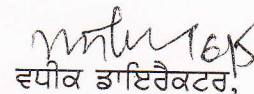 ਵਧੀਕ ਡਾਇਰੈਕਟਰ,